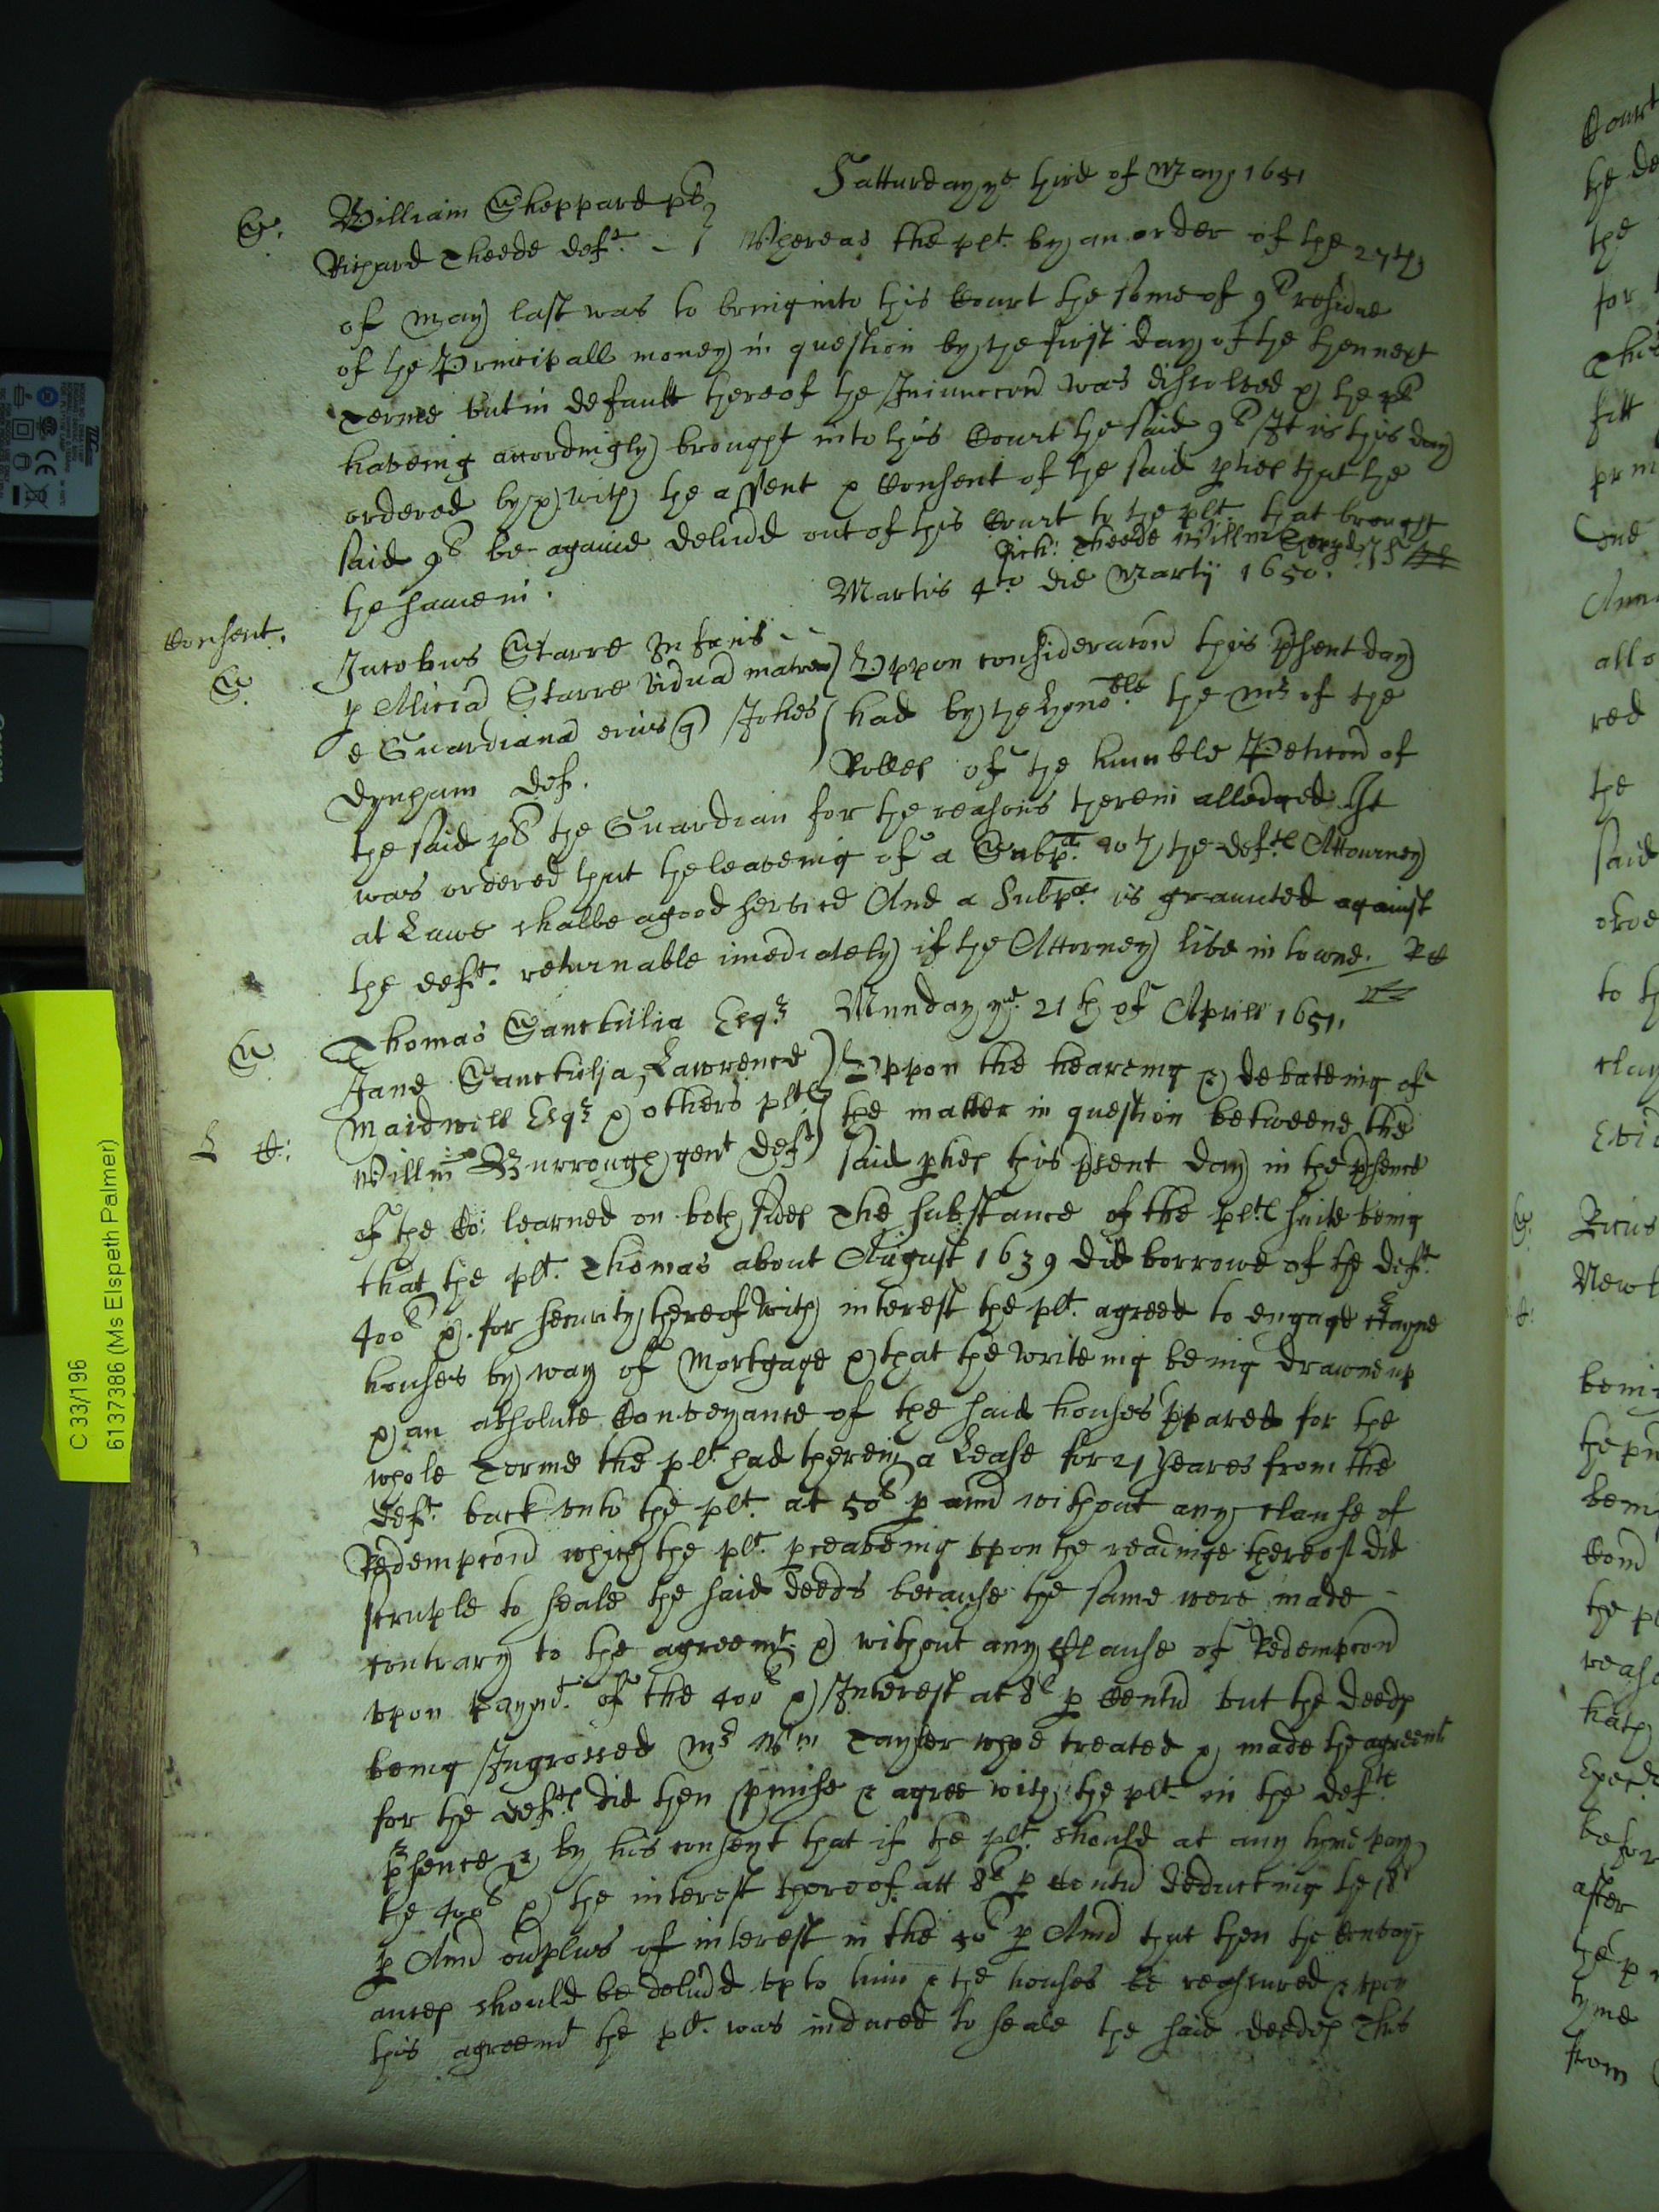 Satturday ye third of May 1651
S. William Sheppard plt
Richard Theede deft. Whereas the plt. by an order of the 27th
of May last was to bring into this Court the some of 9l residue
of the Principall money in question by the first day of the then next
Terme but in default thereof the Iniunccon was dissolved & the plt
haveing accordingly brought into this Court the said 9l It is this day
ordered by & with the assent & Consent of the said pties that the
said 9l be againe delivd out of this Court to the plt. that brought
the same in.
Rich: Theede Willm
Consent.
Martis 4to die Martij 1650.
S. Jacobus Starre Infans
p Aliciã Starre viduã matrem Uppon consideracon this psent day
e Guardianã eius q Johes had by the Honoble. the Mr of the
Dynham def. Rolles of the humble Peticon of
the said plt the Guardian for the reasons therein alledged It
was ordered that the leaveing of a Subpa. wth the defts Attourney
at Lawe shalbe a good service And a Subpa. is graunted against
the deft. returnable imediately if the Attorney live in towne.
Munday ye. 21th of Aprill 1651.
S Thomas Sancktilia Esqr
Jane Sancktilia, Lawrence Uppon the heareing & debateing of
Maidwill Esqr & others plts the matter in question betweene the
L
Willm Burrough gent deft said pties this psent day in the psence
of the Co: learned on both sides The substance of the plts suite being
that the plt. Thomas about August 1639 did borrowe of the deft.
400l &. for security thereof with interest the plt. agreed to engage ctayne
houses by way of Mortgage & that the writeing being drawne up
& an absolute Conveyance of the said houses ppared for the
whole Terme the plt had therein a Lease for 21 yeares from the
deft. back unto the plt. at 50l p annũ without any clause of
Redempcon which the plt. pceaveing upon the readinge thereof did
scruple to seale the said deeds because the same were made
contrary to the agreemt. & without any Clause of Redempcon
upon paymt. of the 400l & Interest at 8l p Centũ but the deeds
being Ingrossed Mr Wm Tayler whoe treated & made the agreemt
for the defts did then pmise & agree with the plt in the defts
psence & by his consent that if the plt. should at any tyme pay
the 400l & the interest thereof att 8l p Centũ deducting the 18l
p Annũ ovplus of interest in the 50l p Annũ that then the Convey-
ances should be delivd up to him & the houses be reassured & upon
this agreemt the plt. was induced to seale the said deedes This
C 33/196
61377386 (Ms Elspeth Palmer)